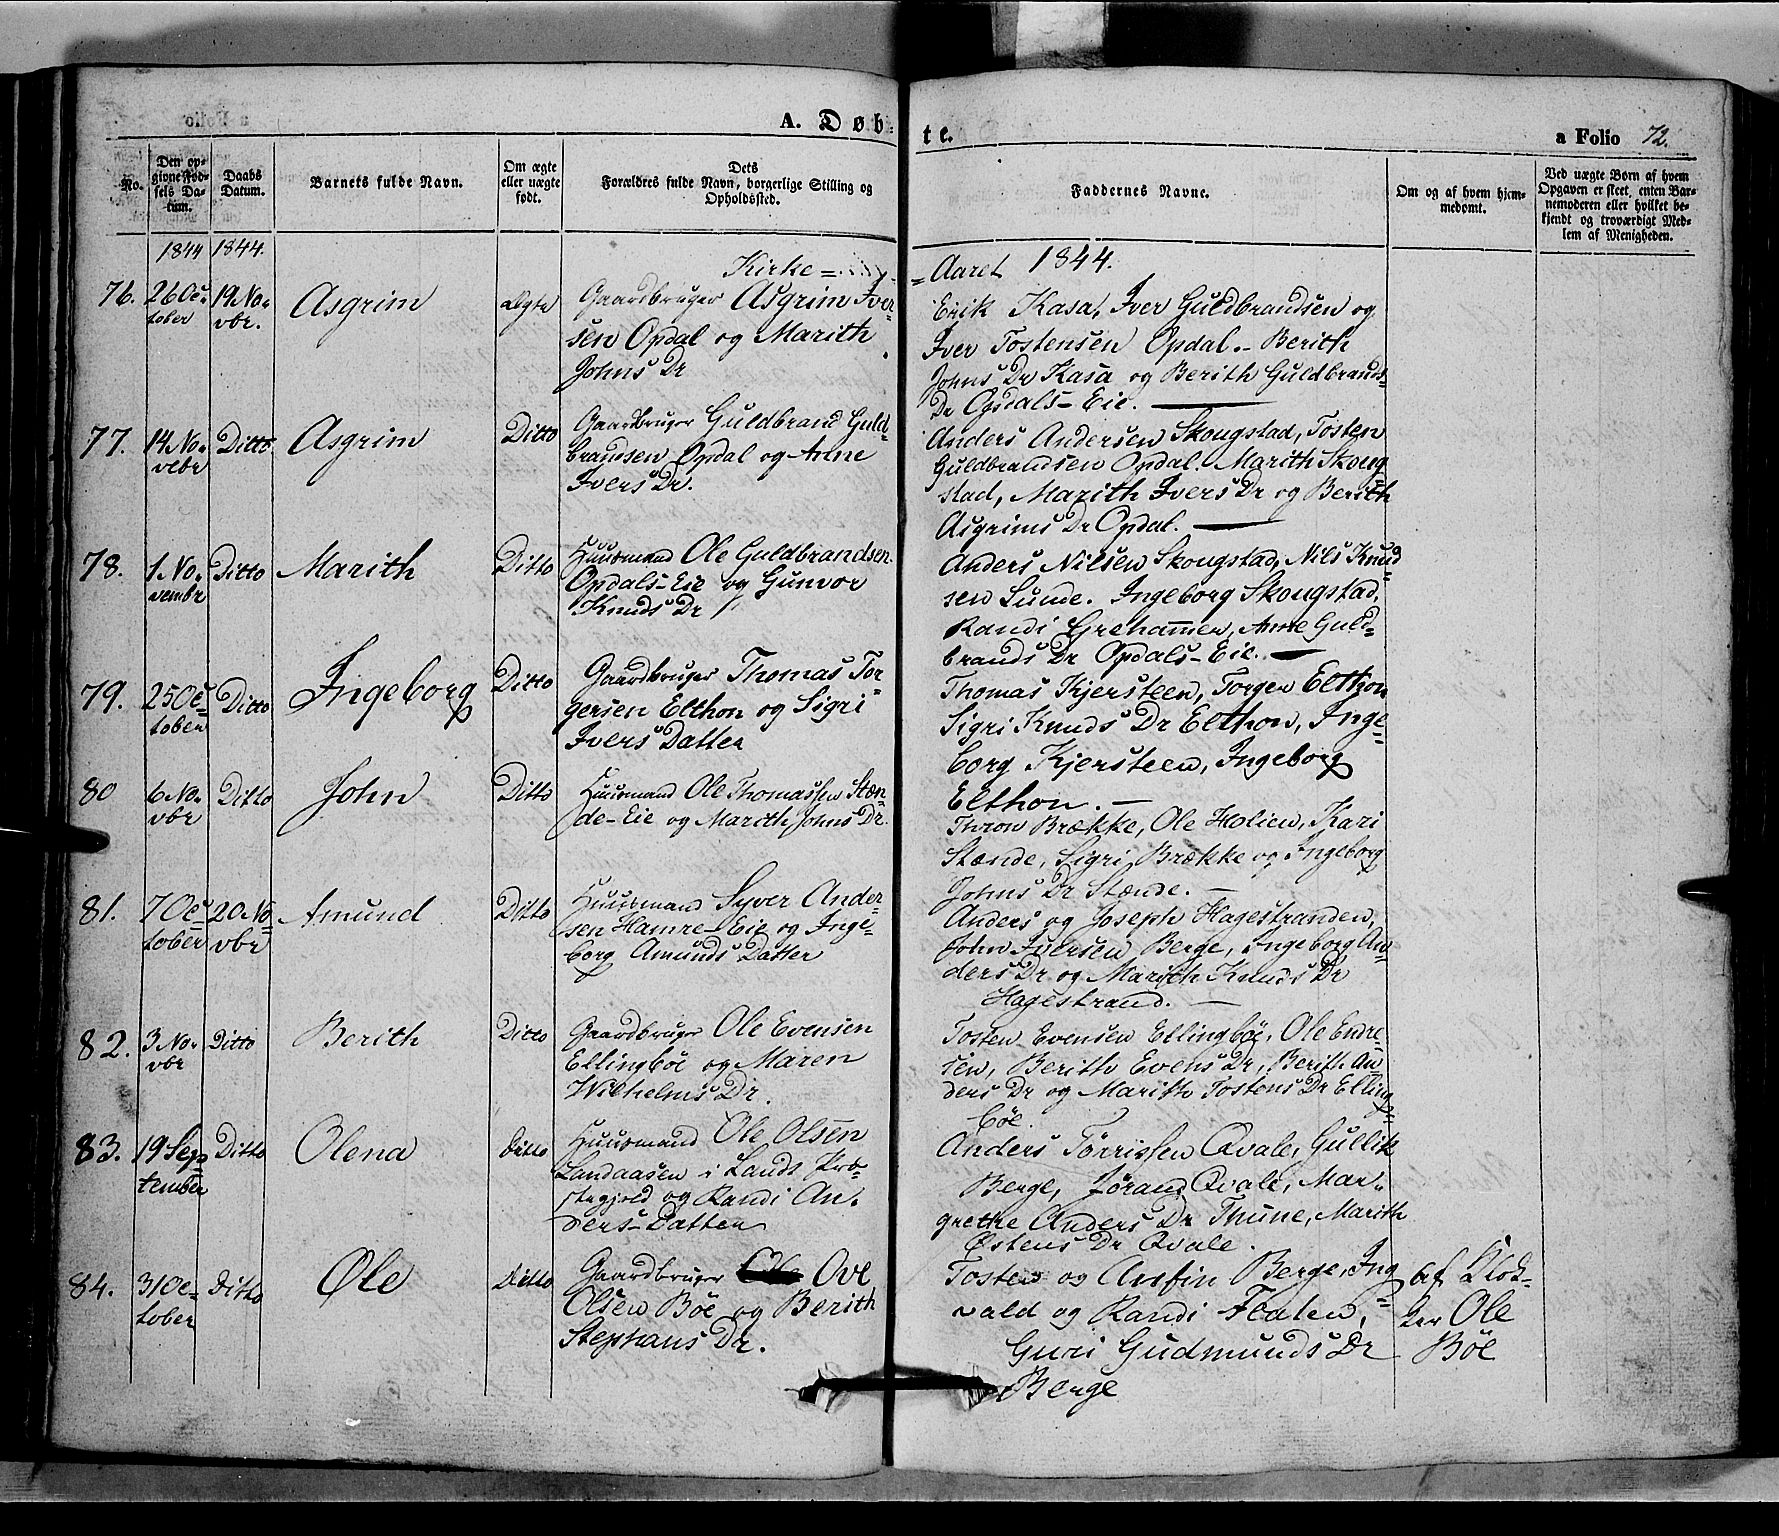 A. Døb-
te.
a Folio 72.
No.
Den op-
givne Fød-
sels Da-
tum.
Daabs
Datum.
Barnets fulde Navn.
Om ægte
eller uægte
født.
Dets
Forældres fulde Navn, borgerlige Stilling og
Opholdssted.
Faddernes Navne.
Om og af hvem hjem-
medøbt.
Ved uægte Børn af hvem
Opgaven er skeet, enten Bar-
nemoderen eller hvilket be-
kjendt og troværdigt Med-
lem af Menigheden.
1844 1844.
Kirke =
= Aaret 1844.
76. 26 Oc-
tober
19 No-
vbr.
Asgrim
Ægte
Gaardbruger Asgrim Iver-
sen Opdal og Marith
Johns Dr
Erik Kasa, Iver Guldbrandsen og
Iver Tostensen Opdal. - Berith
Johns Dr Kasa og Berith Guldbrands-
Dr Opdals-Eie.
77. 14 No-
vebr
Ditto
Asgrim
Ditto
Gaardbruger Guldbrand Guld-
brandsen Opdal og Anne
Ivers Dr.
Anders Andersen Skougstad, Tosten
Guldbrandsen Opdal. Marith Skoug-
stad, Marith Ivers Dr og Berith
Asgrims Dr Opdal.
78. 1 No-
vembr
Ditto
Marith
Ditto
Huusmand Ole Guldbrandsen
Opdals-Eie og Gunvor
Knuds Dr
Anders Nilsen Skougstad, Nils Knud-
sen Lunde. Ingeborg Skougstad,
Randi Grehammer, Anne Guld-
brands Dr Opdals-Eie.
79. 25 Oc-
tober
Ditto
Ingeborg
Ditto
Gaardbruger Thomas Tor-
gersen Elthon og Sigri
Ivers Datter
Thomas Kjersteen, Torger Elthon
Sigri Knuds Dr Elthon, Inge-
borg Kjersteen, Ingeborg
Elthon.
80 6 No-
vbr
Ditto
John
Ditto
Huusmand Ole Thomassen Stæn-
de-Eie og Marith Johns Dr.
Thron Brække, Ole Holien, Kari
Stænde, Sigri Brække og Ingeborg
Johns Dr Stænde.
81. 7 Oc-
tober
20 No-
vbr
Amund
Ditto
Huusmand Syver Ander-
sen Hamre-Eie og Inge-
borg Amunds Datter
Anders og Joseph Hagestranden,
John Iversen Berge, Ingeborg An-
ders Dr og Marith Knuds Dr
Hagestrand.
82. 3 No-
vbr
Ditto
Berith
Ditto
Gaardbruger Ole Evensen
Ellingbøe og Maren
Wilhelms Dr.
Tosten Evensen Ellingbøe, Ole Endre-
sen, Berith Evens Dr, Berith An-
ders Dr og Marith Tostens Dr Elling-
bøe.
83. 19 Sep-
tember
Ditto
Olena
Ditto
Huusmand Ole Olsen
Landaasen i Lands Præ-
stegjeld og Randi An-
ders-Datter
Anders Tørrissen Qvale, Gullik
Berge, Jørand Qvale, Mar-
grethe Anders Dr Thune, Marith
Østens Dr Qvale.
84. 31 Oc-
tober
Ditto
Ole
Ditto
Gaardbruger Ove
Olsen Bøe og Berith
Stephans Dr.
Tosten og Anfin Berge, Ing-
vald og Randi Flaten,
Guri Gudmunds Dr
Berge
af Klok-
ker Ole
Bøe